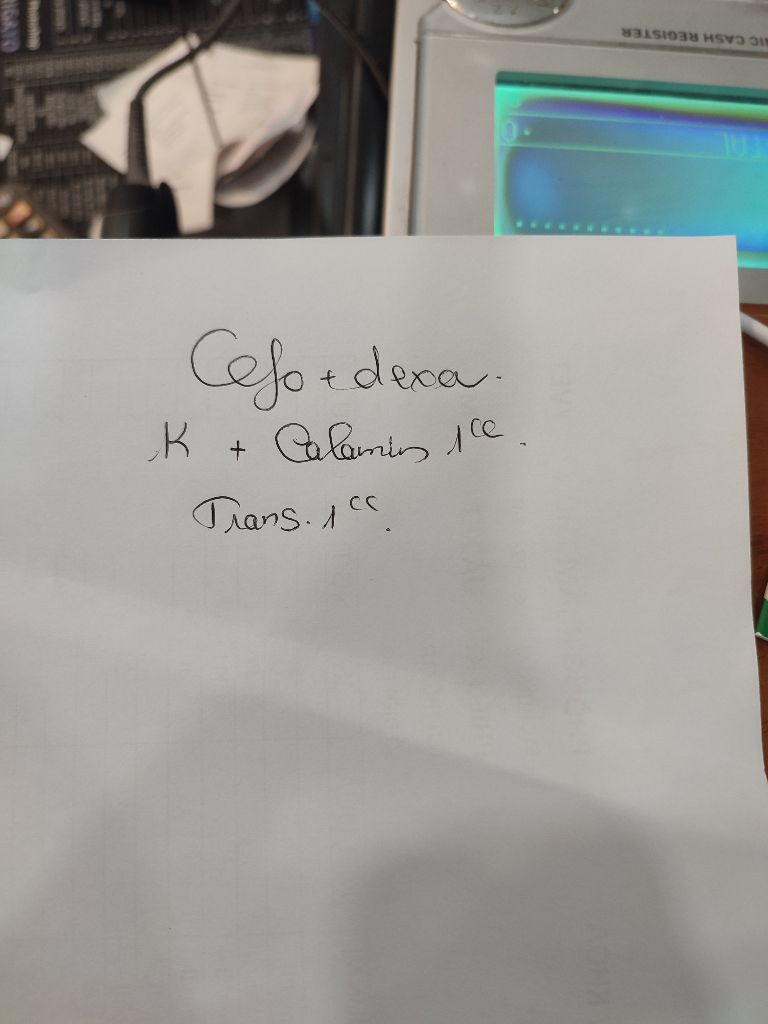 NIC CASH REGISTER
TAL
0.
Cefo + dexa.
K + Calamin 1cc.
Trans. 1cc.